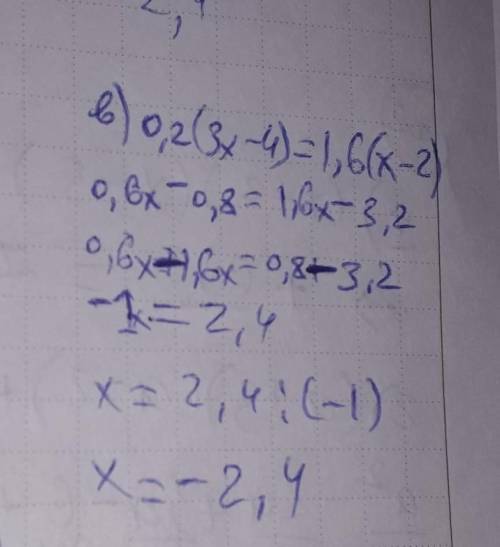 2,4
в) 0,2(3x-4)=1,6(x-2)
0,6x-0,8=1,6x-3,2
0,6x-1,6x=0,8-3,2
-1x=2,4
x=2,4:(-1)
x=-2,4